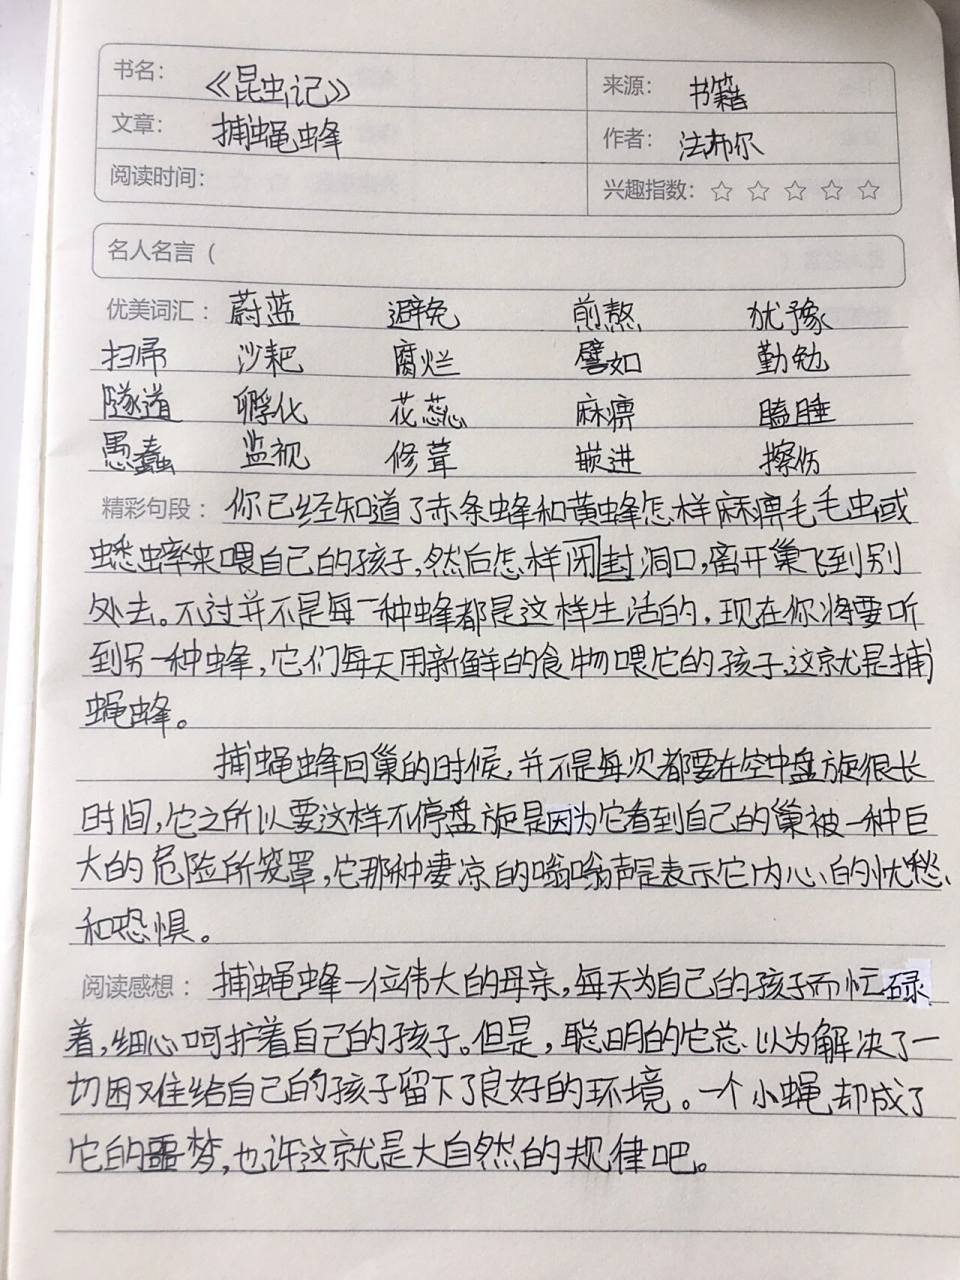 书名： 《昆虫记》 来源： 书籍
文章： 捕蝇蜂 作者： 法布尔
阅读时间： 兴趣指数：☆ ☆ ☆ ☆ ☆
名人名言（
优美词汇： 蔚蓝 避免 煎熬 犹豫
扫帚 沙耙 腐烂 譬如 勤勉
隧道 孵化 花蕊 麻痹 瞌睡
愚蠢 监视 修葺 嵌进 擦伤
精彩句段： 你已经知道了赤条蜂和黄蜂怎样麻痹毛毛虫或
蟋蟀来喂自己的孩子，然后怎样闭封洞口，离开巢飞到别
处去。不过并不是每一种蜂都是这样生活的，现在你将要听
到另一种蜂，它们每天用新鲜的食物喂它的孩子，这就是捕
蝇蜂。
捕蝇蜂回巢的时候，并不是每次都要在空中盘旋很长
时间，它之所以要这样不停盘旋是因为它看到自己的巢被一种巨
大的危险所笼罩，它那种凄凉的嗡嗡声是表示它内心的忧愁
和恐惧。
阅读感想： 捕蝇蜂一位伟大的母亲，每天为自己的孩子而忙碌
着，细心呵护着自己的孩子。但是，聪明的它总以为解决了一
切困难给自己的孩子留下了良好的环境。一个小蝇却成了
它的噩梦，也许这就是大自然的规律吧。